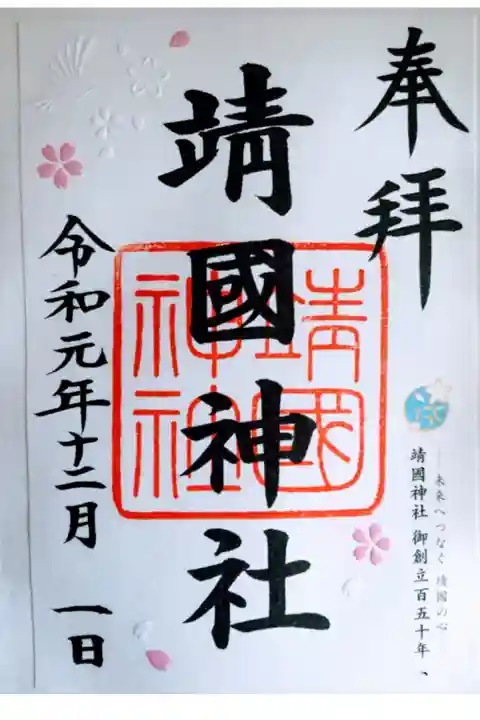 奉拝
150
未来へつなぐ 靖國の心
靖國神社 御創立百五十年、
靖國神社
靖國
神社
令和元年十二月 一日